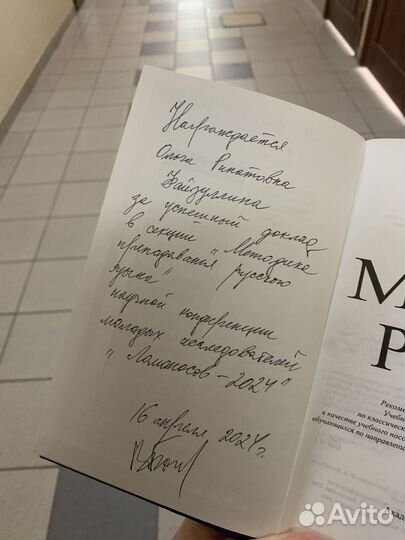 Награждается
Ольга Ринатовна
Файзуллина
за успешный доклад
в секции "Методика
преподавания русского
языка"
научной конференции
молодых исследователей
"Ломоносов-2024"
16 апреля 2024 г.
М
Р
Рекоме
Учебно
по классическ
в качестве учебного посо
обучающихся по направлени
Акаде
Avito